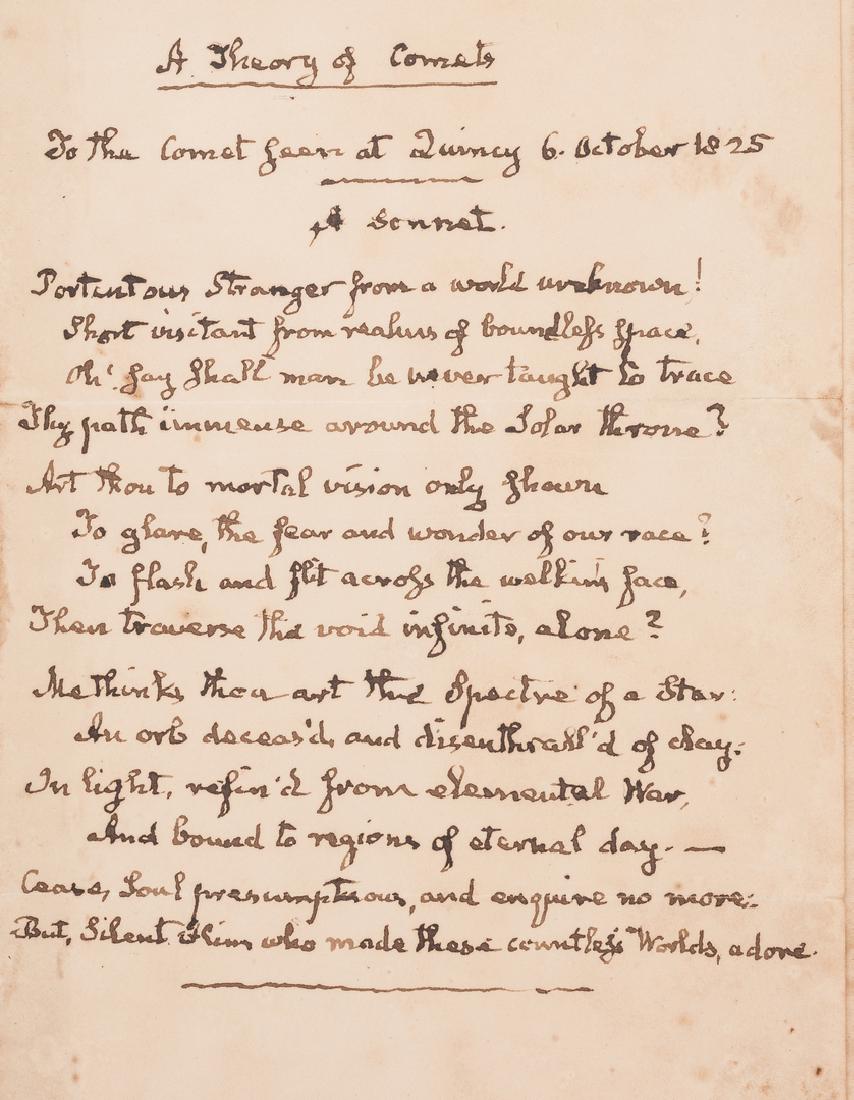 A Theory of Comets
To the Comet seen at Quincy 6. October 1825
A Sonnet.
Portentous Stranger from a world unknown!
Short visitant from realms of boundless space,
Oh! say shall man be never taught to trace
Thy path immense around the Solar throne?
Art thou to mortal vision only shown
To glare, the fear and wonder of our race?
To flash and flit across the welkin's face,
Then traverse the void infinite, alone?
Methinks thou art the Spectre of a Star:
An orb deceas'd, and disenthrall'd of clay;
In light, refin'd from elemental War,
And bound to regions of eternal day. —
Cease, Soul presumptuous, and enquire no more:
But, Silent Him who made these countless Worlds, adore.